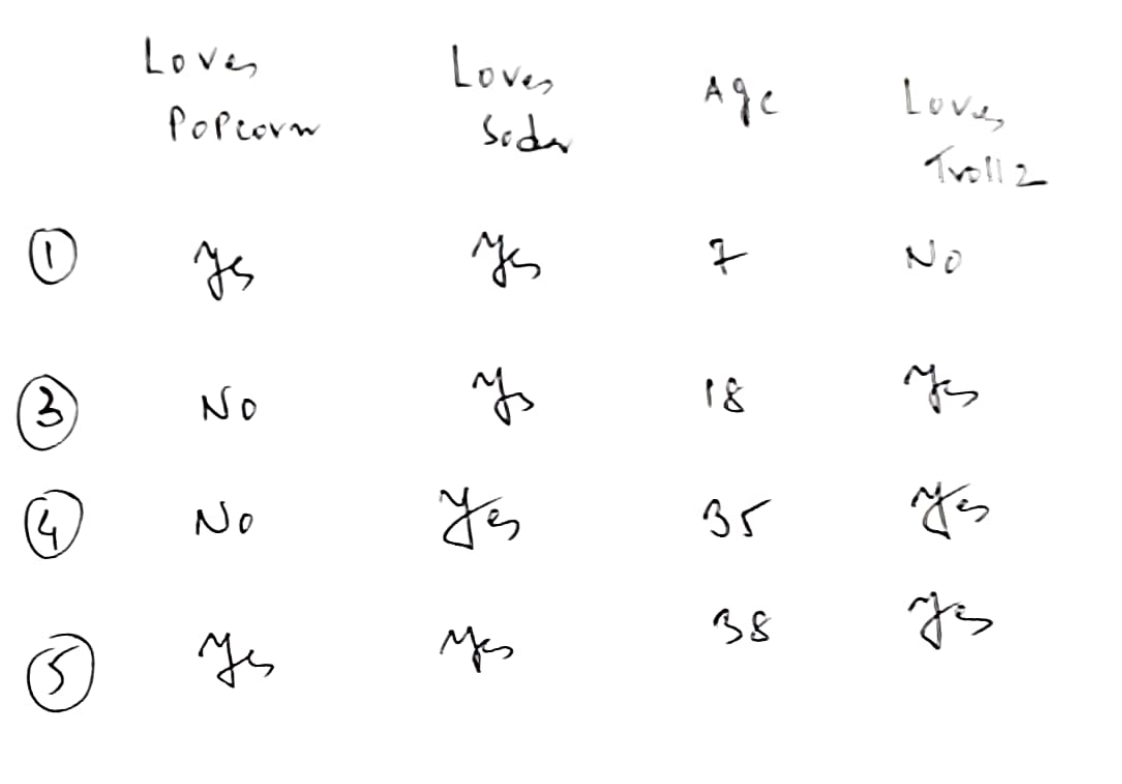 Loves Popcorn Loves Soda Age Loves Troll 2
① Yes Yes 7 No
③ No Yes 18 Yes
④ No Yes 35 Yes
⑤ Yes Yes 38 Yes